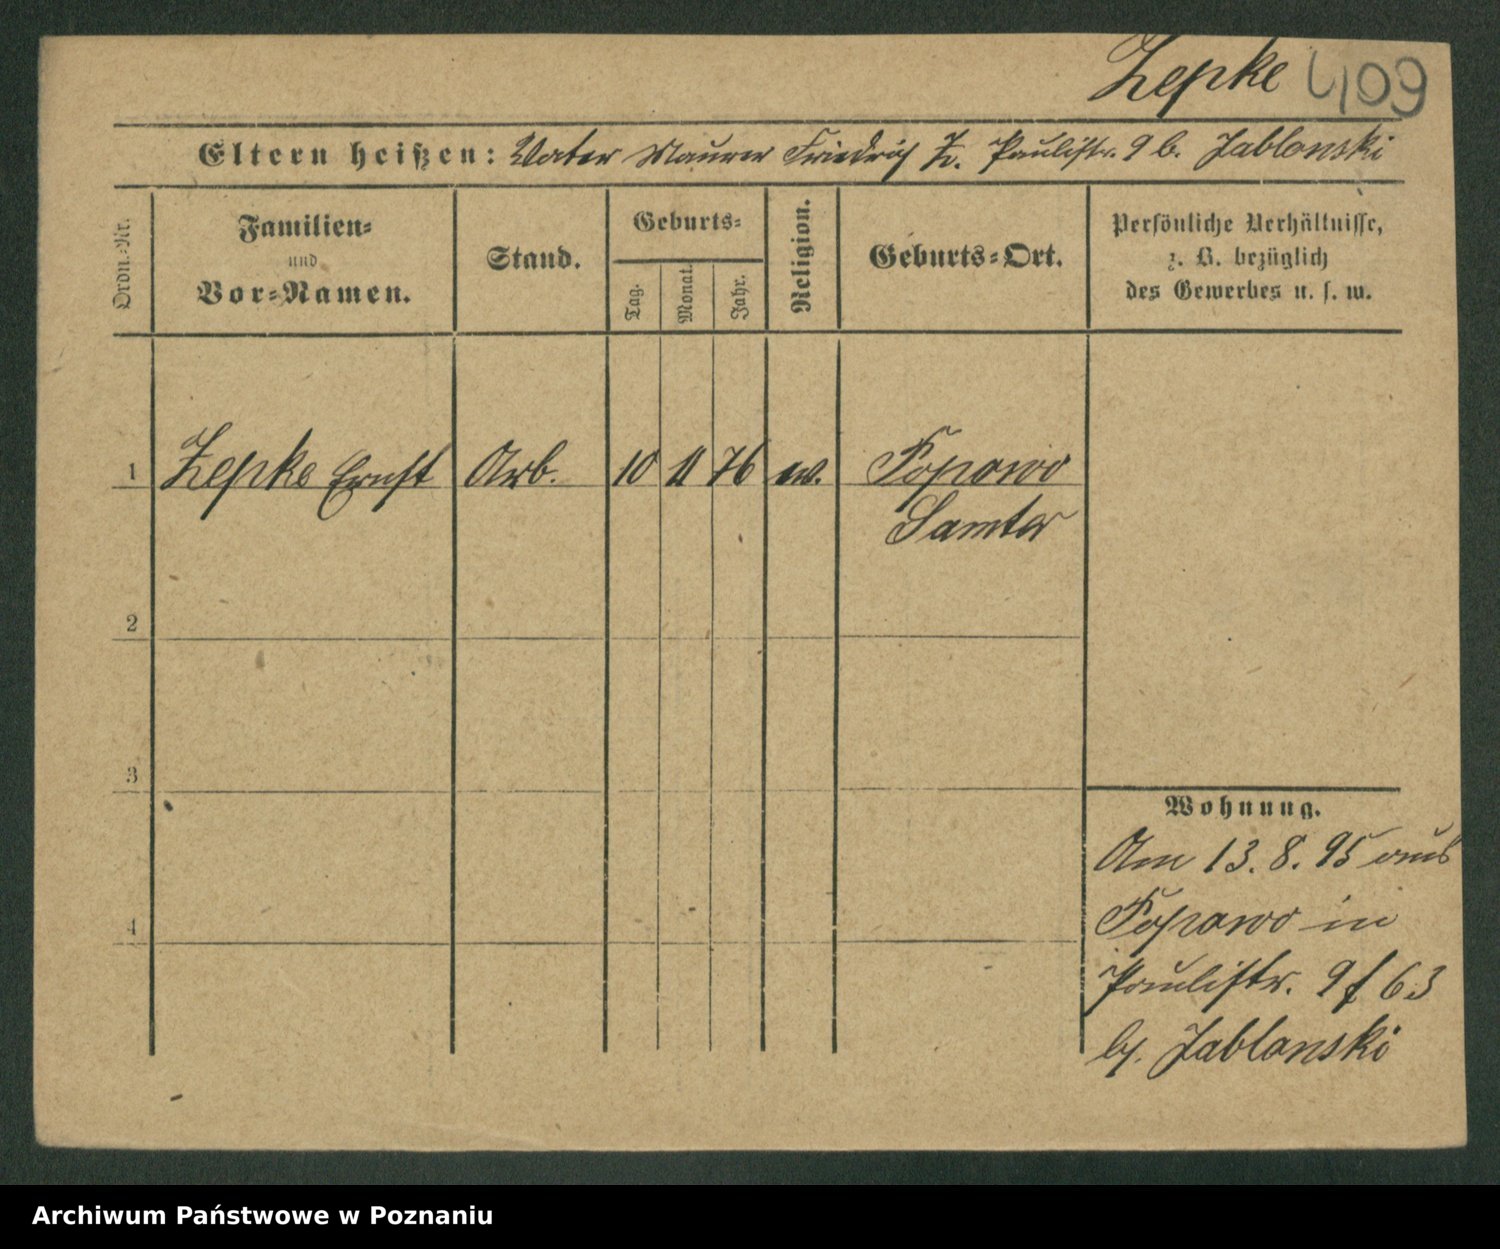 Zepke 409
Eltern heißen: Vater Maurer Friedrich Z. Paulistr. 9 b. Jablonski
Ordn.-Nr.
Familien-
und
Vor-Namen.
Stand.
Geburts-
Tag.
Monat.
Jahr.
Religion.
Geburts-Ort.
Persönliche Verhältnisse,
z. B. bezüglich
des Gewerbes u. s. w.
1 Zepke Ernst Arb. 10 11 76 ev. Popowo
Samter
2
3
4
Wohnung.
Am 13. 8. 95 aus
Popowo in
Paulistr. 9 f 63
b. Jablonski
Archiwum Państwowe w Poznaniu